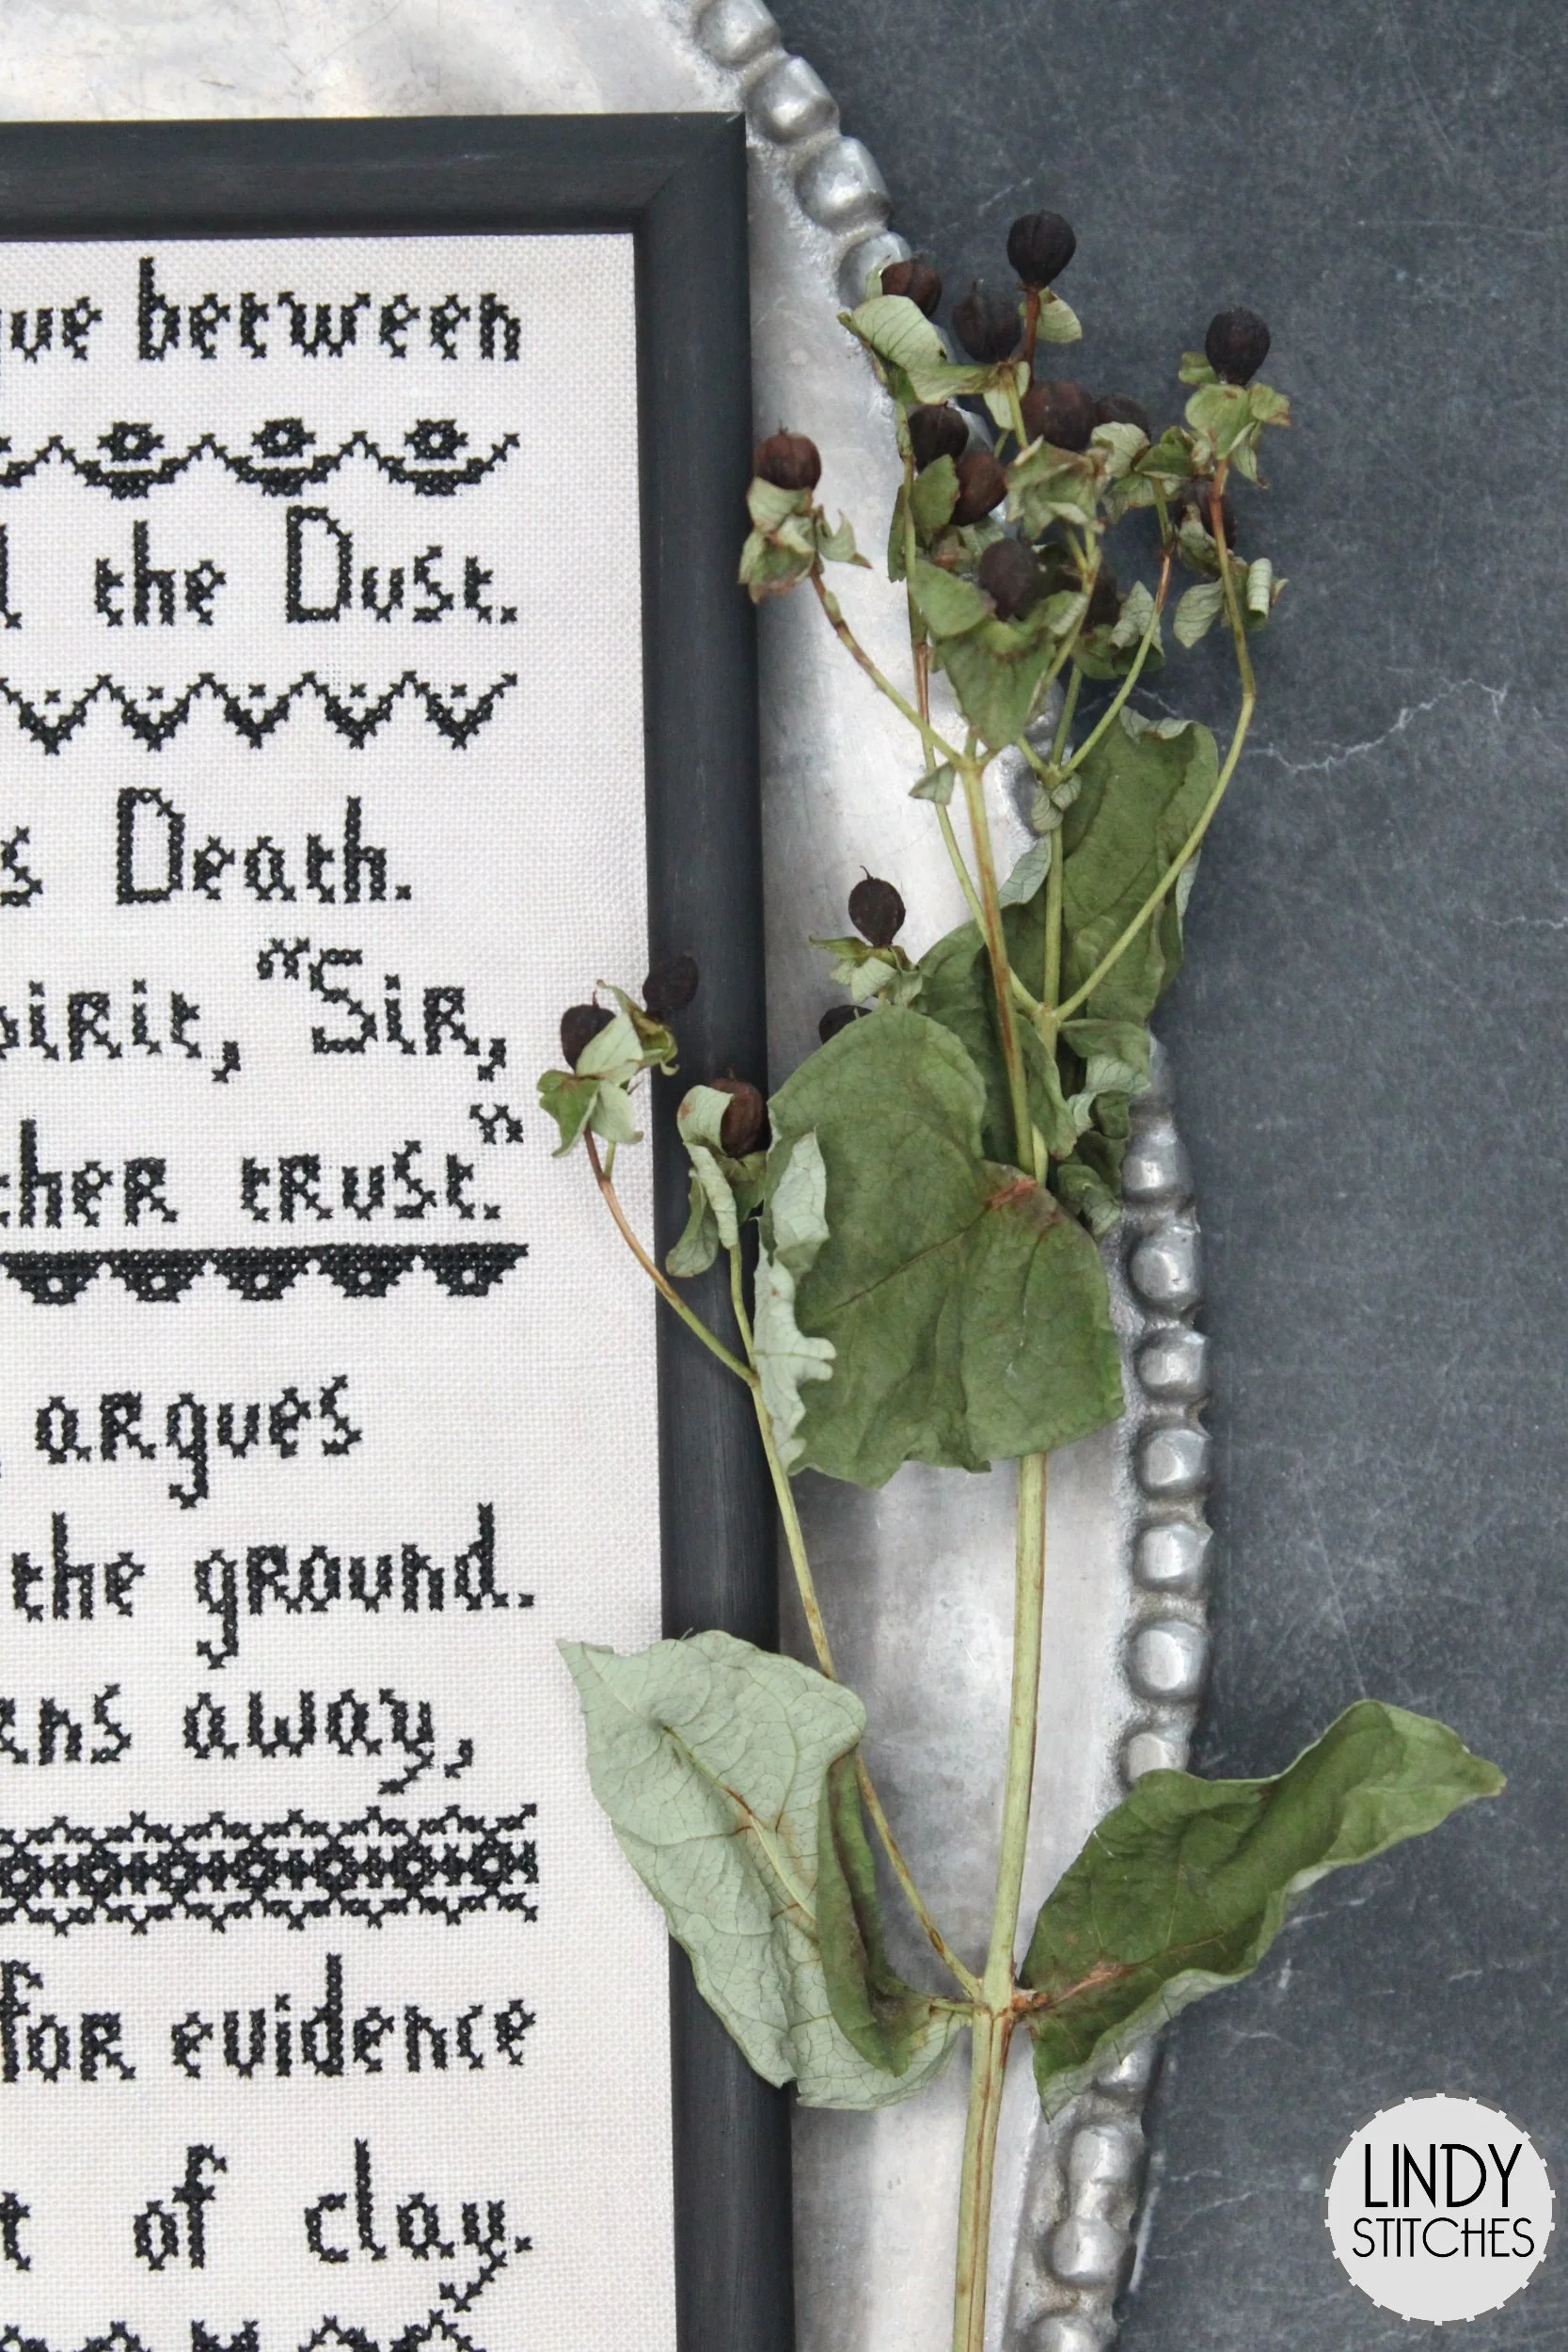 between
the Dust.
Death.
"Sir,
trust."
argues
the ground.
away,
for evidence
of clay.
LINDY
STITCHES